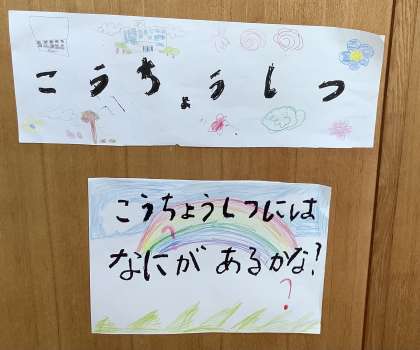 こうちょうしつ
こうちょうしつには
なにが あるかな?
?
?